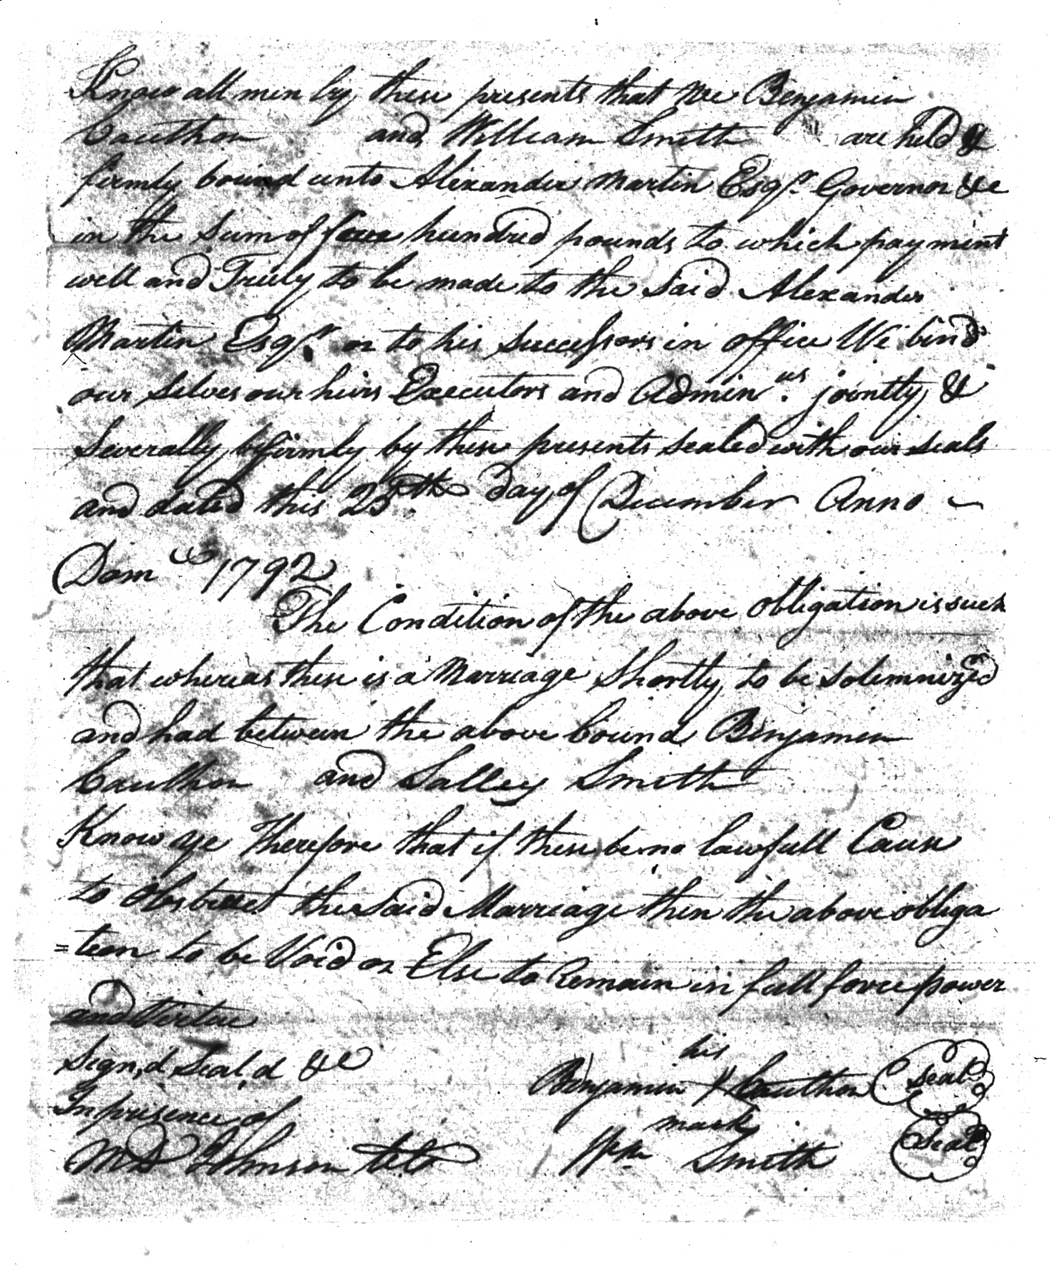 Know all men by these presents that we Benjamin
Cauthon and William Smith are held &
firmly bound unto Alexander Martin Esqr. Governor &c
in the Sum of five hundred pounds to which payment
well and Truly to be made to the Said Alexander
Martin Esqr. or to his Successors in office We bind
our Selves our heirs Executors and Admin.rs jointly &
Severally & firmly by these presents sealed with our seals
and dated this 25th. day of December Anno
Dom 1792
The Condition of the above obligation is such
that whereas there is a Marriage Shortly to be Solemnized
and had between the above bound Benjamin
Cauthon and Salley Smith
Know ye Therefore that if there be no lawfull Cause
to the Said Marriage then the above obliga
=tion to be Void or Else to Remain in full force power
and Virtue
Sign,d Seal,d &c
In presence of
Johnson
his
Benjamin X Cauthon Seal
mark
Wm Smith Seal